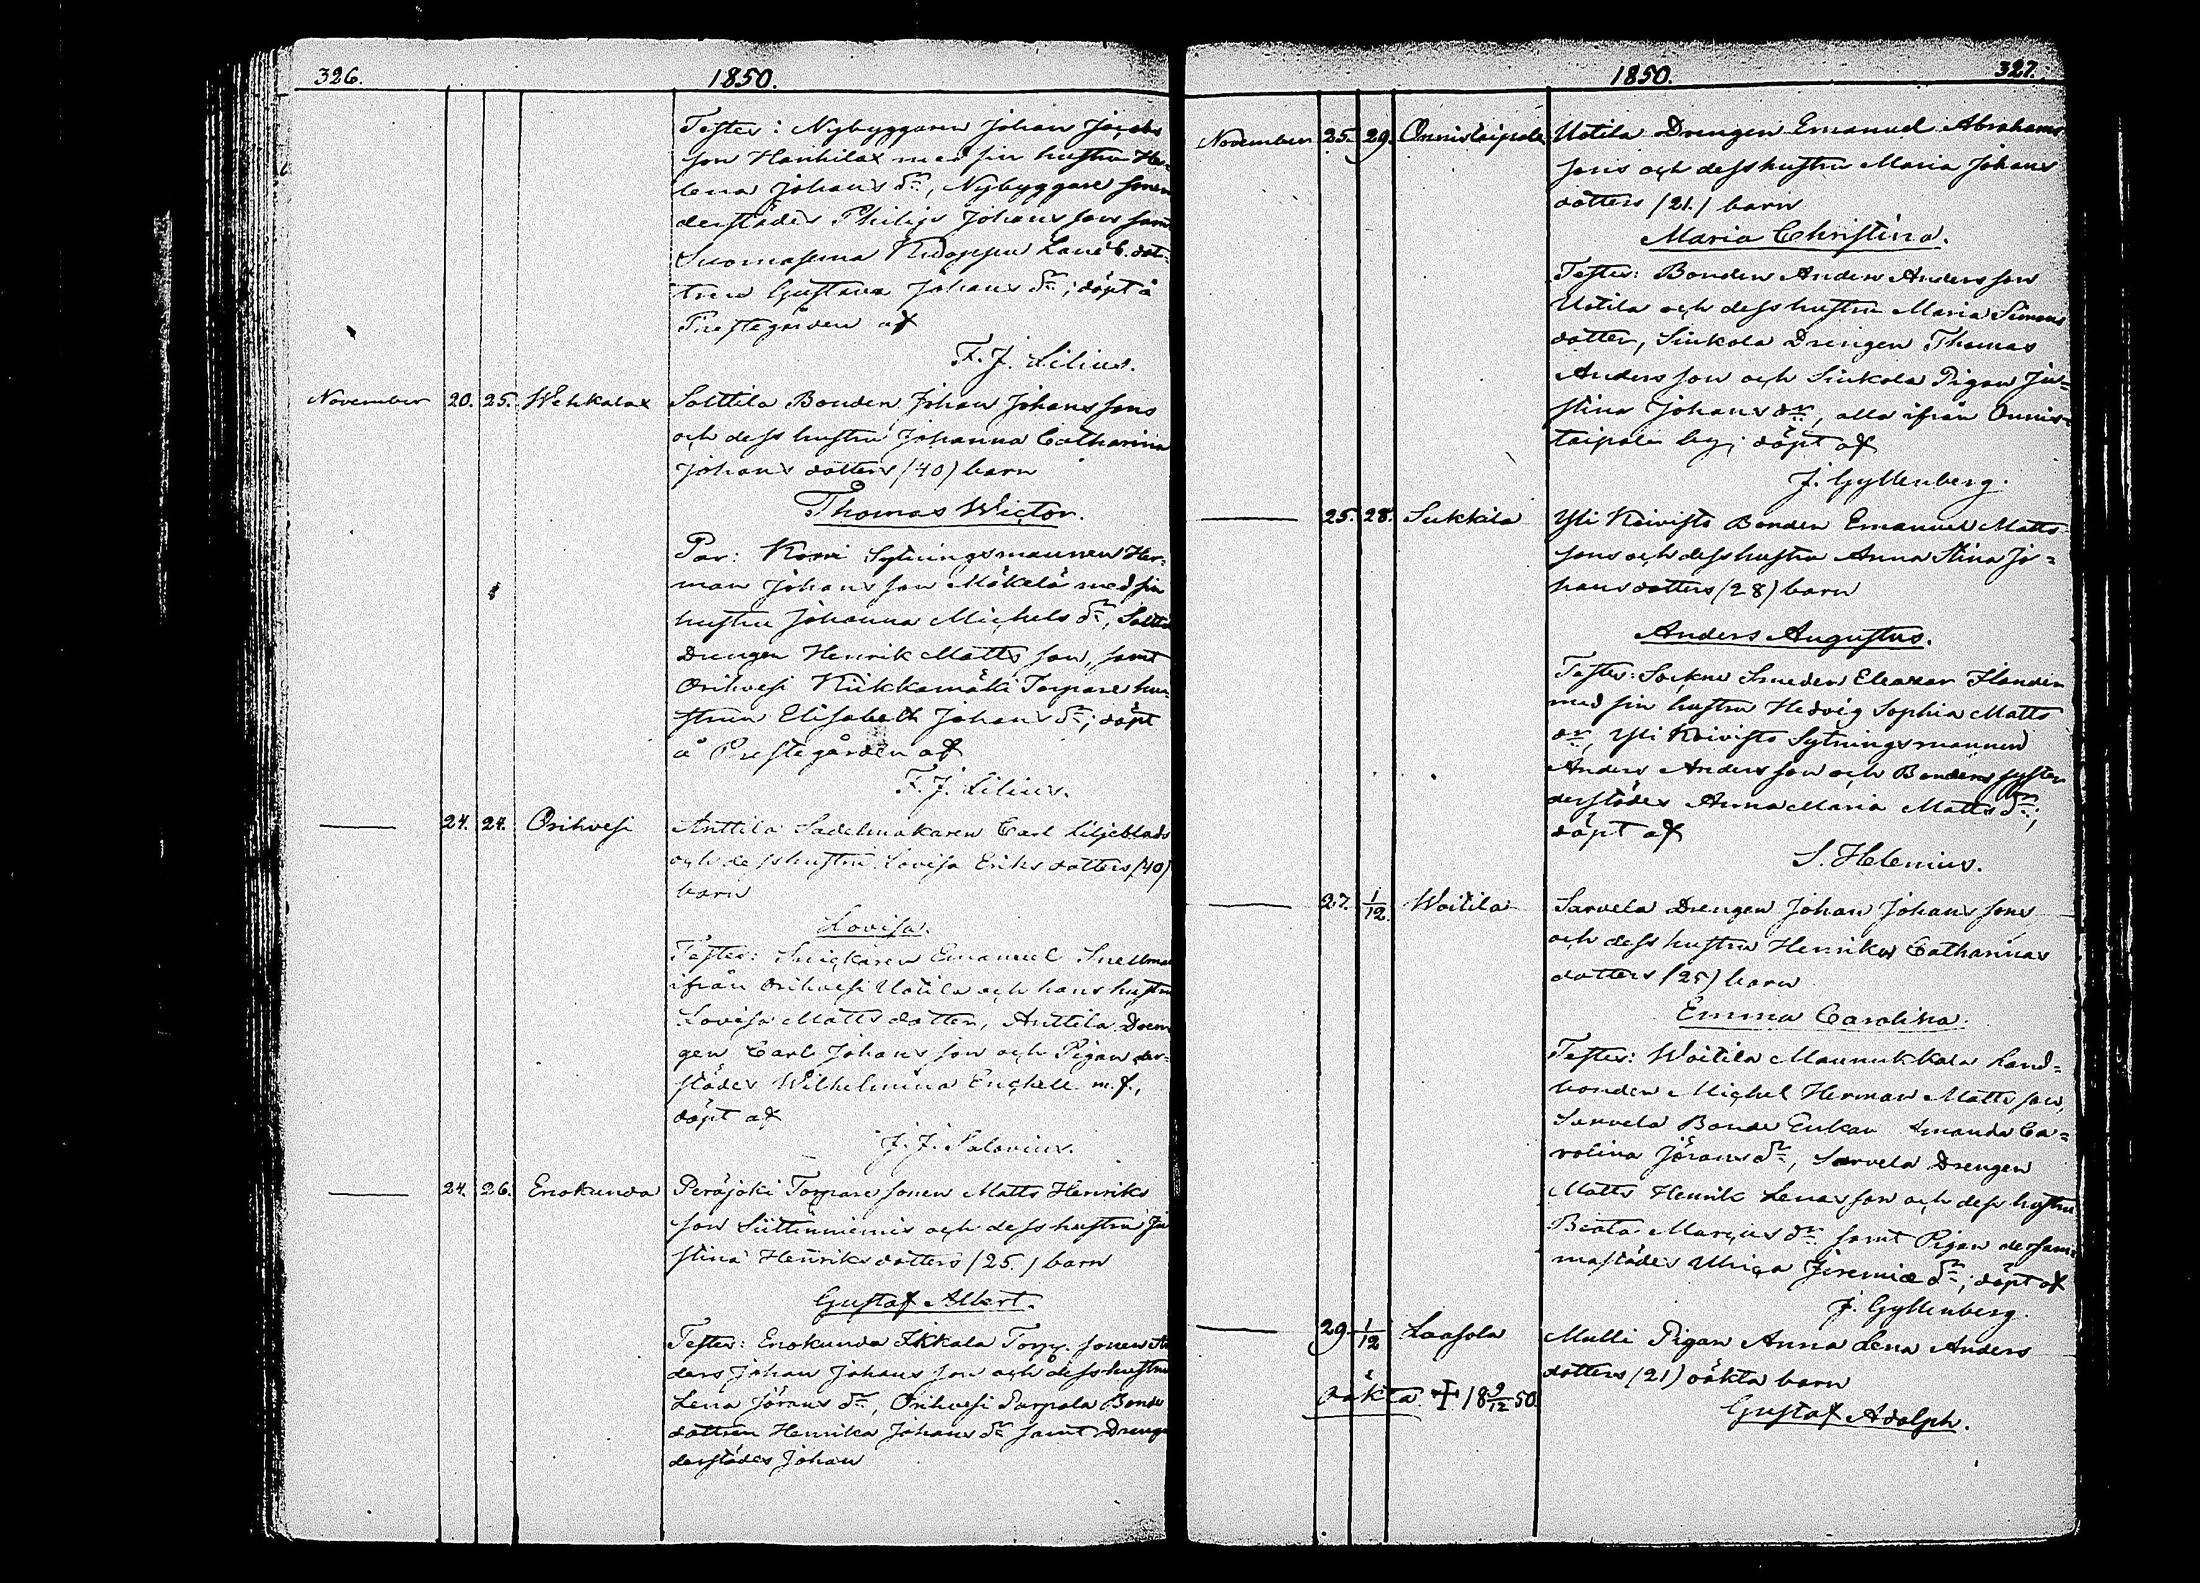 326. 1850.
Testes: Nybyggaren Johan Jacobs
son Hankilax med sin hustru He-
lena Johans dr, Nybyggare sonen
derstädes Philip Johans son samt
Suomasema Landb. dot-
tren Gustava Johans dr; döpt å
Prestegården af
F. J. Lilius.
November 20. 25. Wehkalax Solttila Bonden Johan Johans sons
och dess hustru Johanna Catharina
Johans dotters (40) barn
Thomas Wictor.
Par: Korri Sytningsmannen Her-
man Johans son Mäkelä med sin
hustru Johanna Michels dr, Solttila
Drengen Henrik Matts son, samt
Orihvesi Kiikkamäki Torpare hu-
strun Elisabeth Johans dr; döpt
å Prestegården af
F. J. Lilius.
— 24. 24. Orihvesi Anttila Sadelmakaren Carl Liljeblads
och dess hustru Lovisa Eriks dotters (40)
barn
Lovisa.
Testes: Snickaren Emanuel Snellman
ifrån Orihvesi Uotila och hans hustru
Lovisa Matts dotter, Anttila Dren
gen Carl Johans son och Pigan der-
städes Wilhelmina Enqhell m. f.,
döpt af
J. J. Salovius.
— 24. 26. Enokunda Peräjoki Torpare sonen Matts Henriks
son Siittinniemis och dess hustru Ju
stina Henriks dotters (25.) barn
Gustaf Albert.
Testes: Enokunda Ikkala Torp. sonen An
ders Johan Johans son och dess hustru
Lena Jörans dr, Orihvesi Parpala Bonde
dottren Henrika Johans dr samt Dreng
derstädes Johan
1850. 327.
November 25. 29. Onnistaipale Uotila Drengen Emanuel Abrahams
sons och dess hustru Maria Johans
dotters (21.) barn
Maria Christina.
Testes: Bonden Anders Anders son
Uotila och dess hustru Maria Simons
dotter, Sinkola Drengen Thomas
Anders son och Sinkola Pigan Ju-
stina Johans dr, alla ifrån Onnis-
taipale by; döpt af
J. Gyllenberg.
— 25. 28. Sukkila Yli Koivisto Bonden Emanuel Matts
sons och dess hustru Anna Stina Jo-
hans dotters (28) barn
Anders Augustus.
Testes: Sockne Smeden Eleazar Flanden
med sin hustru Hedvig Sophia Matts
dr, Yli Koivisto Sytningsmannen
Anders Anders son och Bondens syster
derstädes Anna Maria Matts dr;
döpt af
S. Helenius.
— 27. 1/12. Woitila Sarvela Drengen Johan Johans sons
och dess hustru Henrika Catharinas
dotters (25) barn
Emma Carolina.
Testes: Woitila Maunukkala Land-
bonden Michel Herman Matts son,
Sarvela Bonde Enkan Amanda Ca-
rolina Jörans dr, Sarvela Drengen
Matts Henrik Lenas son och dess hustru
Beata Marcus dr samt Pigan dersam-
mastädes Ulrica Jeremiæ dr; döpt af
J. Gyllenberg.
— 29. 1/12 Laasola Mulli Pigan Anna Lena Anders
dotters (21) oäkta barn
oäkta. † 18 9/12 50.
Gustaf Adolph.